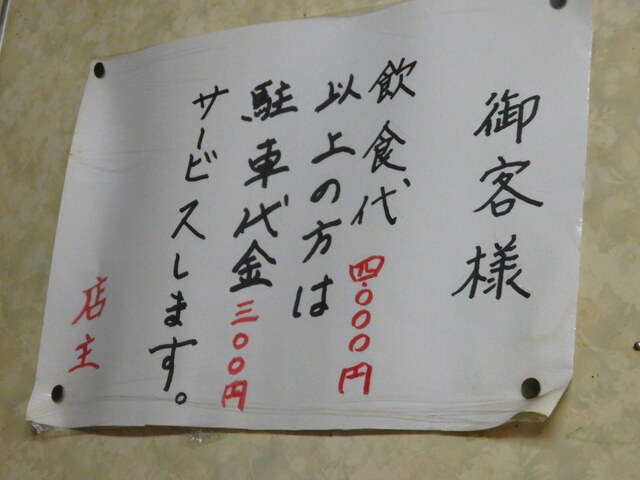 御客様
飲食代四.〇〇〇円
以上の方は
駐車代金三〇〇円
サービスします。
店主